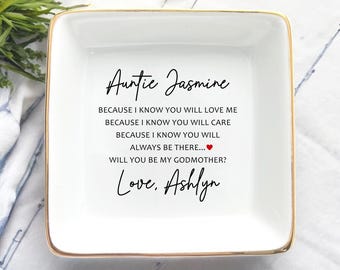 Auntie Jasmine
BECAUSE I KNOW YOU WILL LOVE ME
BECAUSE I KNOW YOU WILL CARE
BECAUSE I KNOW YOU WILL
ALWAYS BE THERE...♥
WILL YOU BE MY GODMOTHER?
Love, Ashlyn